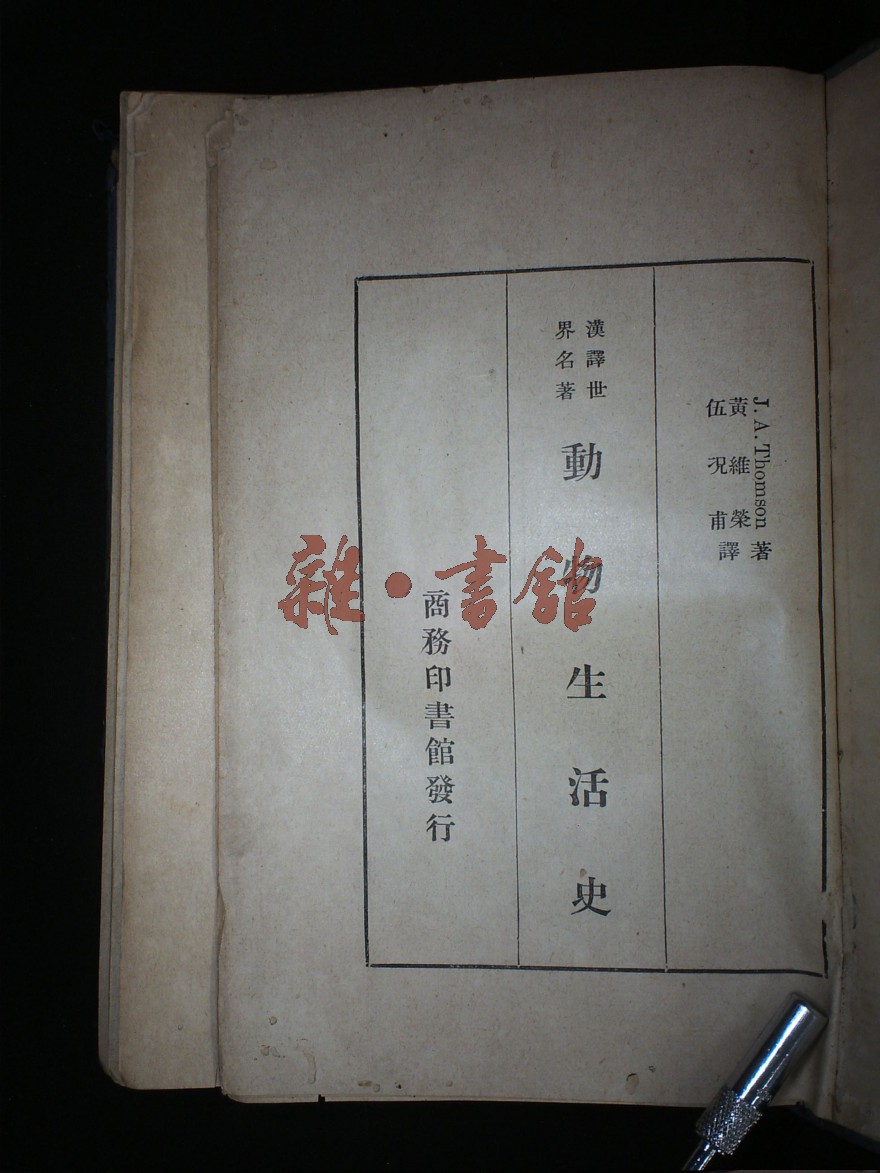 J. A. Thomson 著
黃維榮
伍況甫 譯
漢譯世
界名著
動物生活史
商務印書館發行
雜·書館